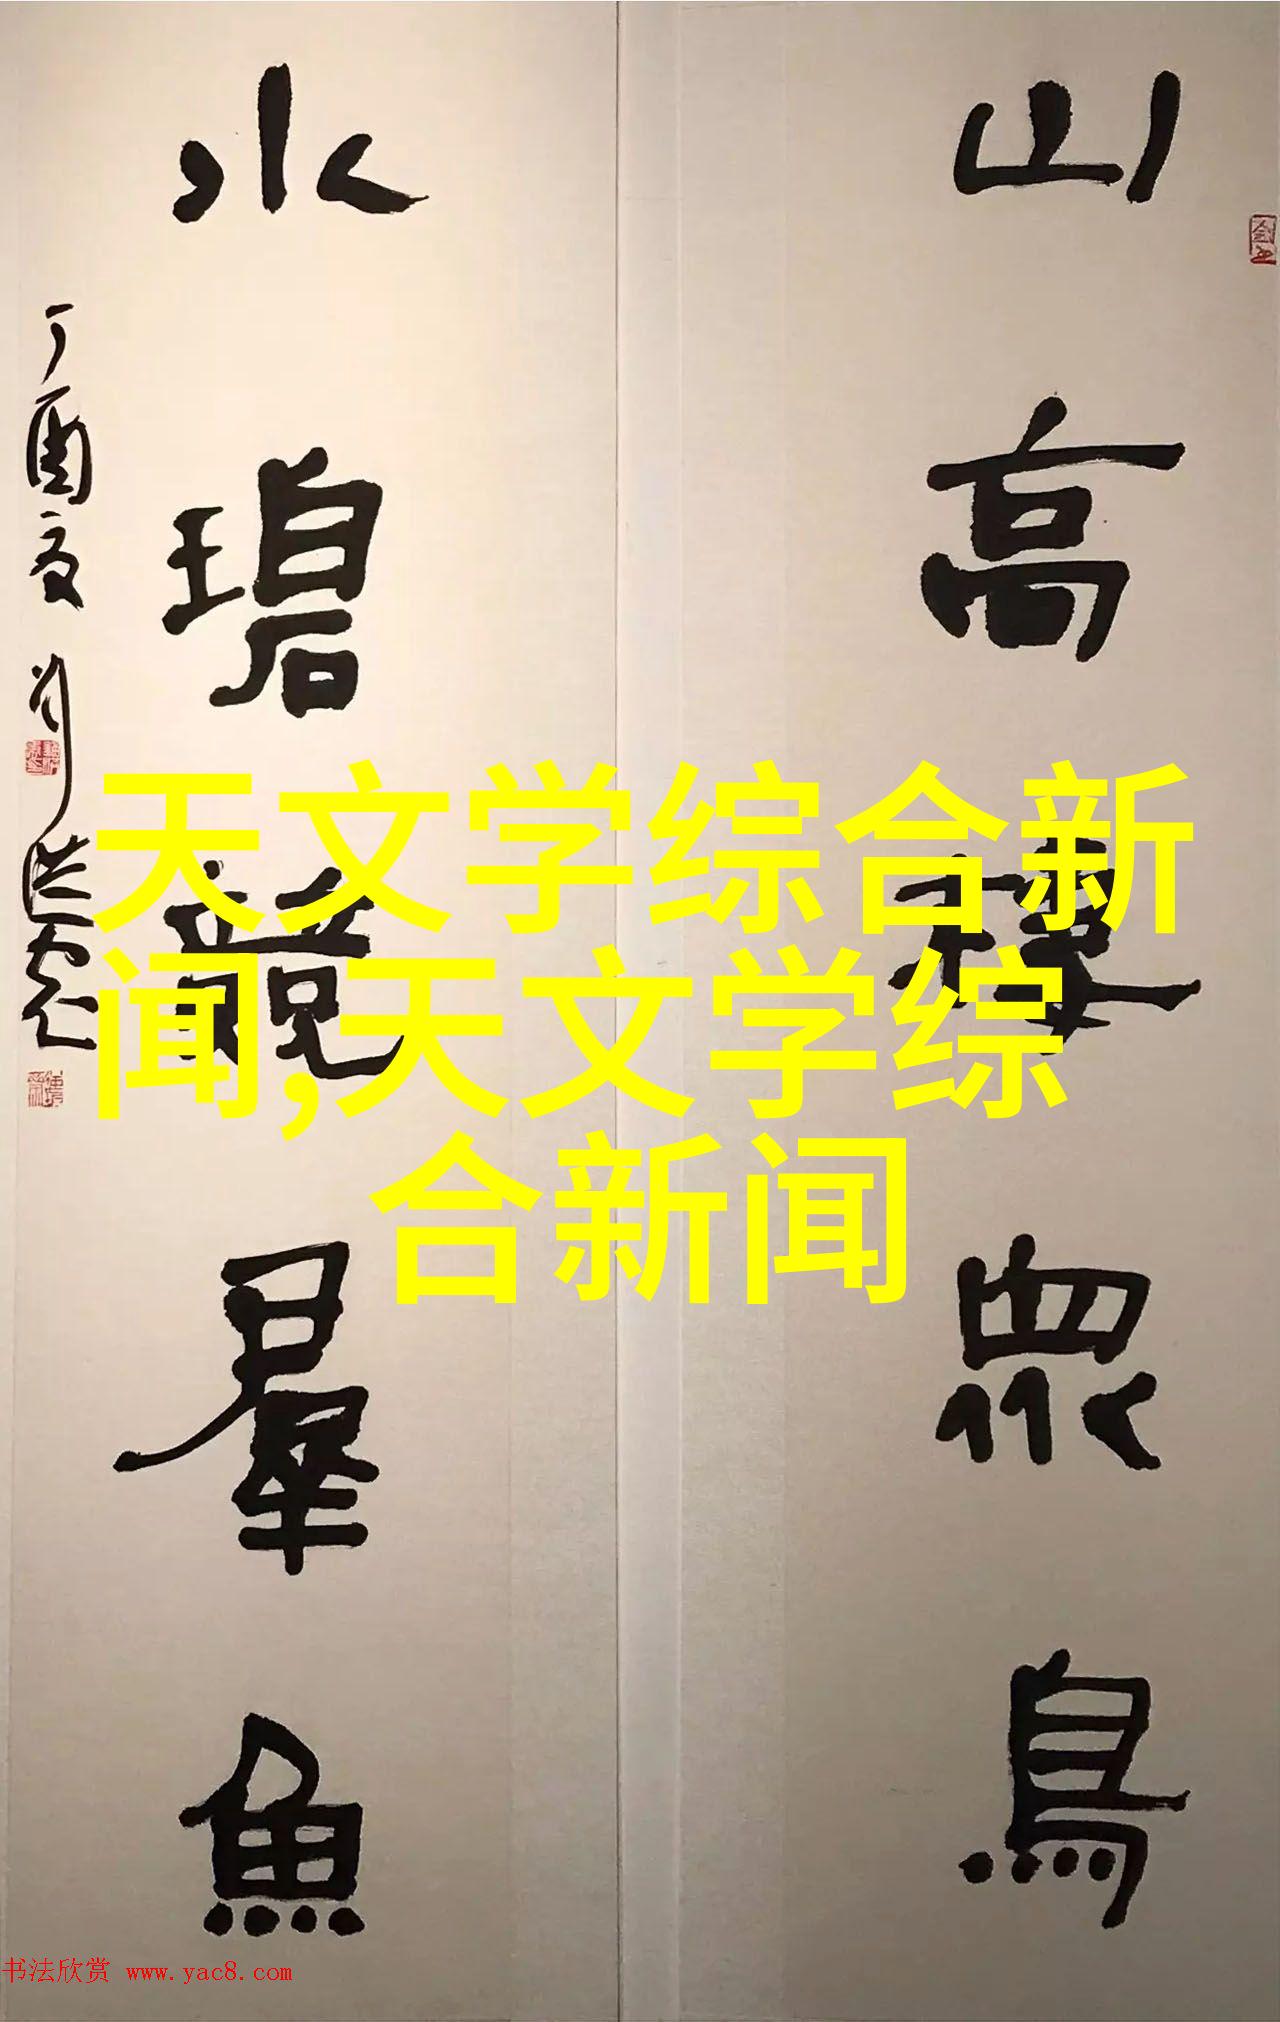 山高棲眾鳥
水碧競羣魚
丁酉夏刘洪彪
天文学综合新
闻,天文学综
合新闻
书法欣赏 www.yac8.com